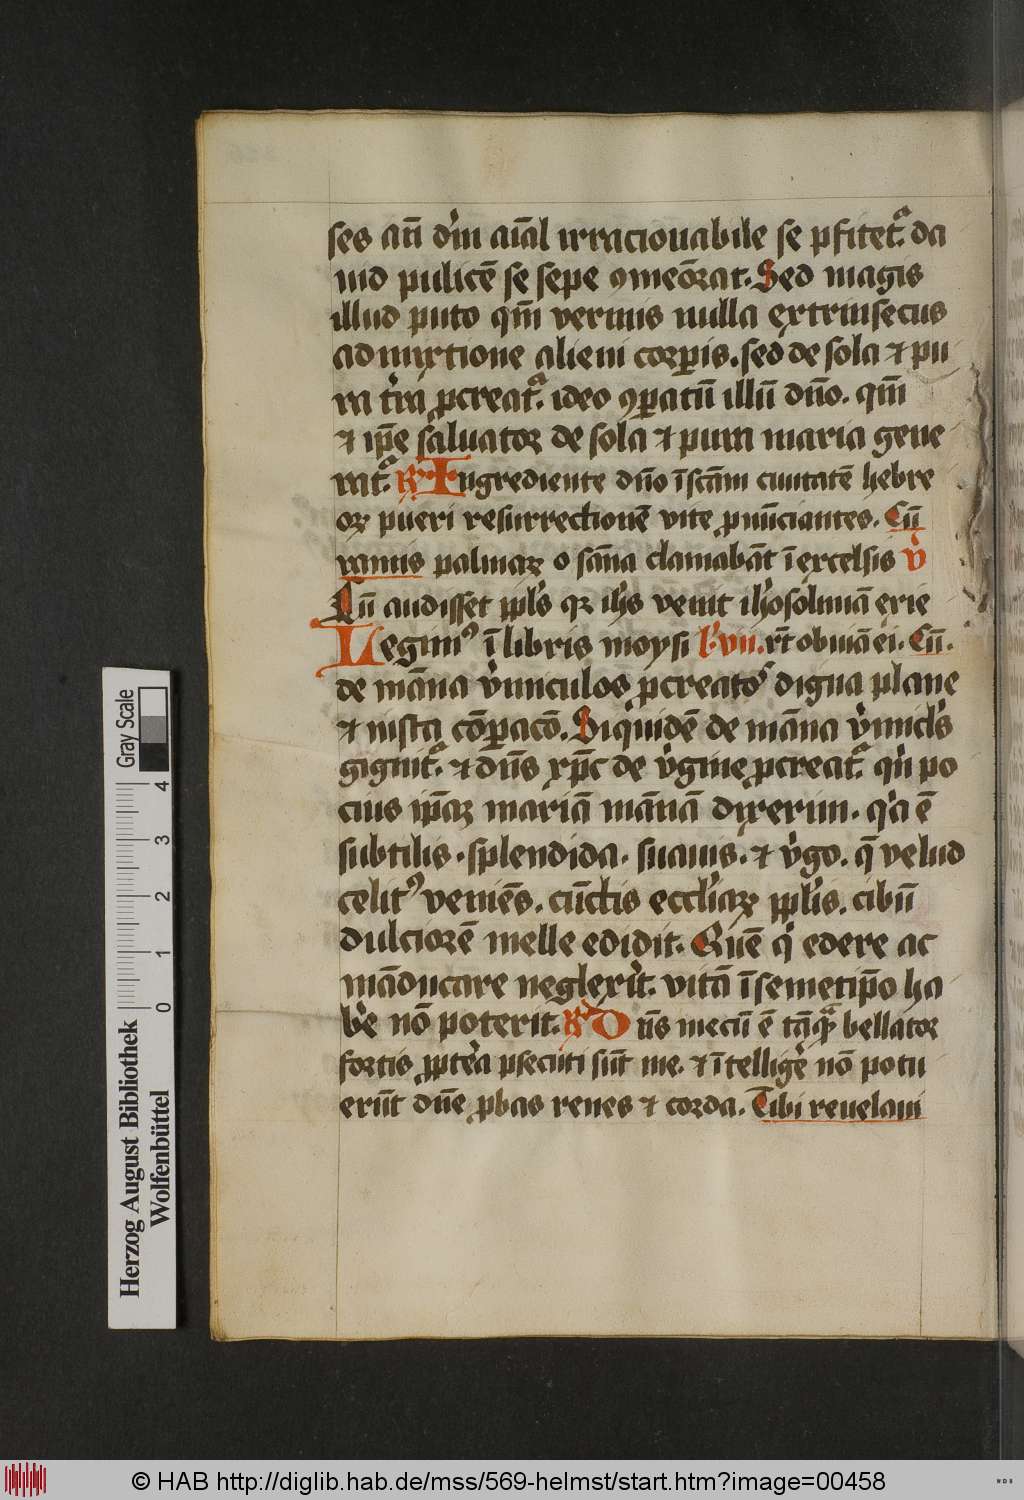 ses atī dr̄m aīal irracionabile se pfitet᷑. da
uid pulicē se sepe ꝯmeōrat. Sed magis
illud puto qm̄ vermis nulla extrinsecus
admixtione alieni corꝑis. sed de sola ⁊ pu
ra tr̄ra ꝓcreat᷑. ideo ꝯꝑatū illū dn̄o. qm̄
⁊ ip̄e saluator de sola ⁊ pura maria gene
rat᷑. R Ingrediente dn̄o ī scām ciuitatē hebre
oꝝ pueri resurrectionē vite ꝓnūciantes. Cū
ramis palmaꝝ o sāna clamabāt ī excelsis V
Cū audisset ppl̄s qꝫ ih̄s venit ih̄osolimā exie
Legimꝰ ī libris moysi l' vii. rt̄ obuiā ei. Cū.
de māna v̄miculos ꝓcreatos digna plane
⁊ iusta cōꝑacō. Siquidē de māna v̄micl̄s
gignit᷑. ⁊ dn̄s xp̄c de v̄gine ꝓcreat᷑. qn̄ po
cius ip̄aꝝ mariā mānā dixerim. qa ē
subtilis. splendida. suauis. ⁊ v̄go. q̄ velud
celitꝰ veniēs. cūctis eccl̄iaꝝ ppl̄is. cibū
dulciorē melle edidit. Quē q̇ edere ac
māducare neglexīt. vitā ī semetip̄o ha
b̄e nō poterit. R Dn̄s mecū ē tāꝙ bellator
fortis ꝓpt̄ea ꝑsecuti sūt me. ⁊ ītelliḡe nō potu
erūt dn̄e ꝓbas renes ⁊ corda. Tibi reuelaui
Herzog August Bibliothek
Wolfenbüttel
0 1 2 3 4
Gray Scale
© HAB http://diglib.hab.de/mss/569-helmst/start.htm?image=00458